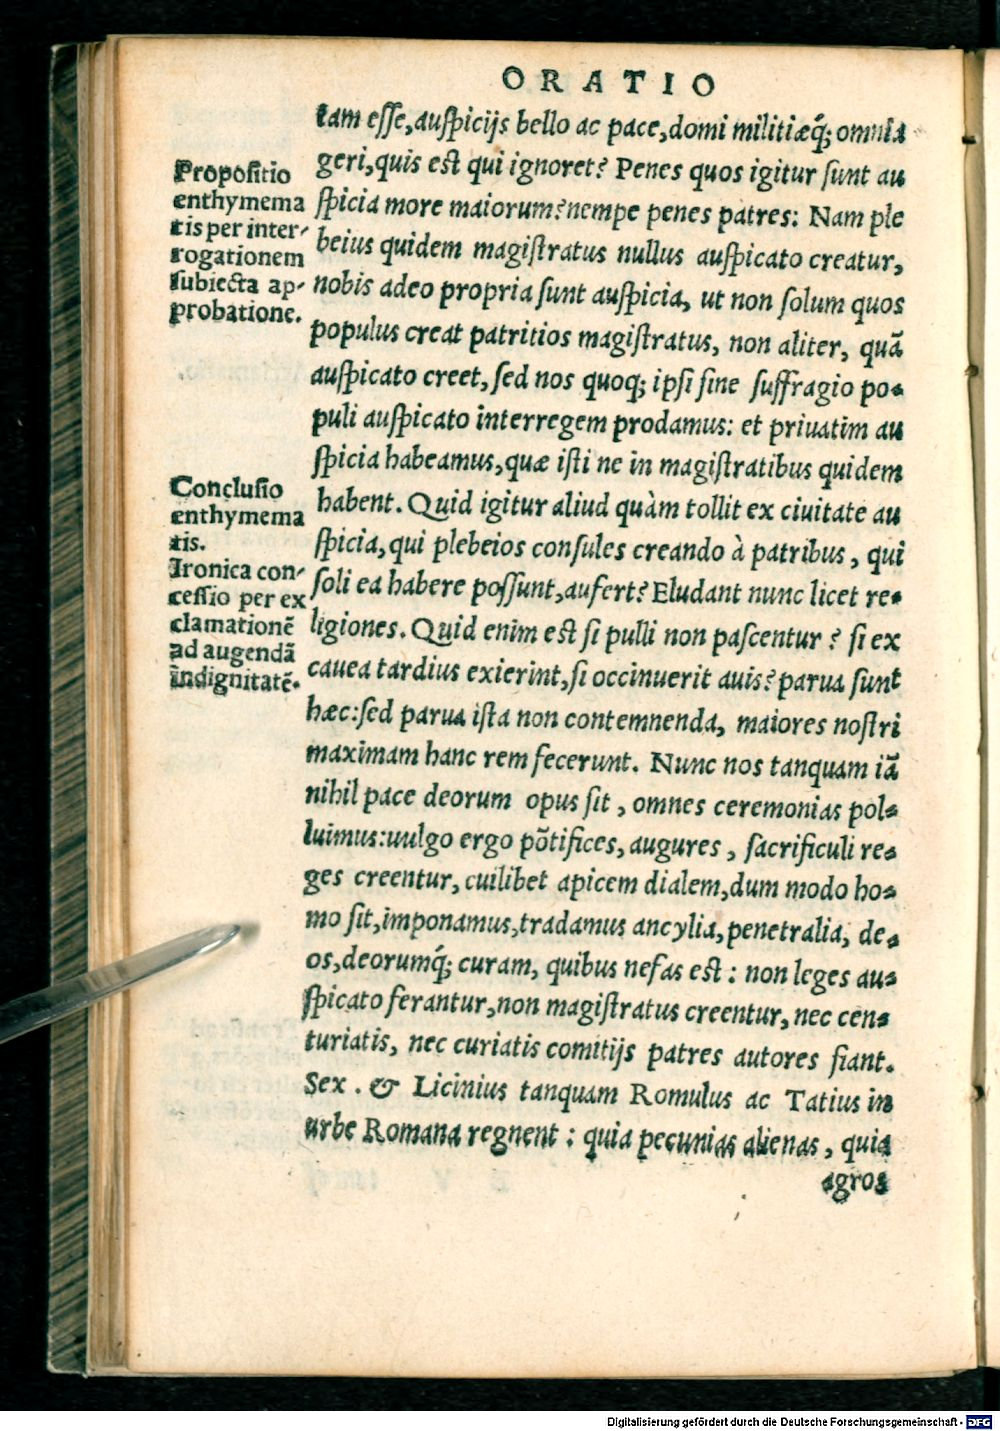 ORATIO
tam esse, auspicijs bello ac pace, domi militiæq́; omnia
geri, quis est qui ignoret? Penes quos igitur sunt au
spicia more maiorum? nempe penes patres: Nam ple
beius quidem magistratus nullus auspicato creatur,
nobis adeo propria sunt auspicia, ut non solum quos
populus creat patritios magistratus, non aliter, quã
auspicato creet, sed nos quoq; ipsi sine suffragio po-
puli auspicato interregem prodamus: et priuatim au
spicia habeamus, quæ isti ne in magistratibus quidem
habent. Quid igitur aliud quàm tollit ex ciuitate au
spicia, qui plebeios consules creando à patribus, qui
soli ea habere possunt, aufert? Eludant nunc licet re-
ligiones. Quid enim est si pulli non pascentur? si ex
cauea tardius exierint, si occinuerit auis? parua sunt
hæc: sed parua ista non contemnenda, maiores nostri
maximam hanc rem fecerunt. Nunc nos tanquam iã
nihil pace deorum opus sit, omnes ceremonias pol-
luimus: uulgo ergo põtifices, augures, sacrificuli re-
ges creentur, cuilibet apicem dialem, dum modo ho-
mo sit, imponamus, tradamus ancylia, penetralia, de-
os, deorumq́; curam, quibus nefas est: non leges au-
spicato ferantur, non magistratus creentur, nec cen-
turiatis, nec curiatis comitijs patres autores fiant.
Sex. & Licinius tanquam Romulus ac Tatius in
urbe Romana regnent: quia pecunias alienas, quia
agros
Propositio
enthymema
tis per inter-
rogationem
subiecta ap-
probatione.
Conclusio
enthymema
tis.
Ironica con-
cessio per ex
clamationẽ
ad augendã
indignitatẽ.
Digitalisierung gefördert durch die Deutsche Forschungsgemeinschaft - DFG